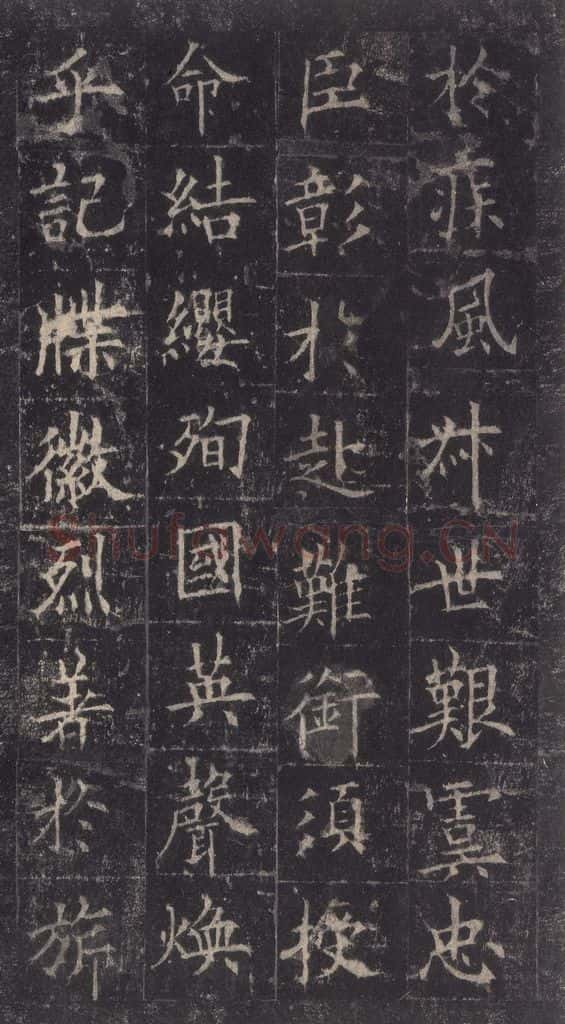 於疾風叔世艱虞忠
臣彰於赴難銜須授
命結纓殉國英聲煥
乎記牒徽烈著於旂
Shufawang.CN